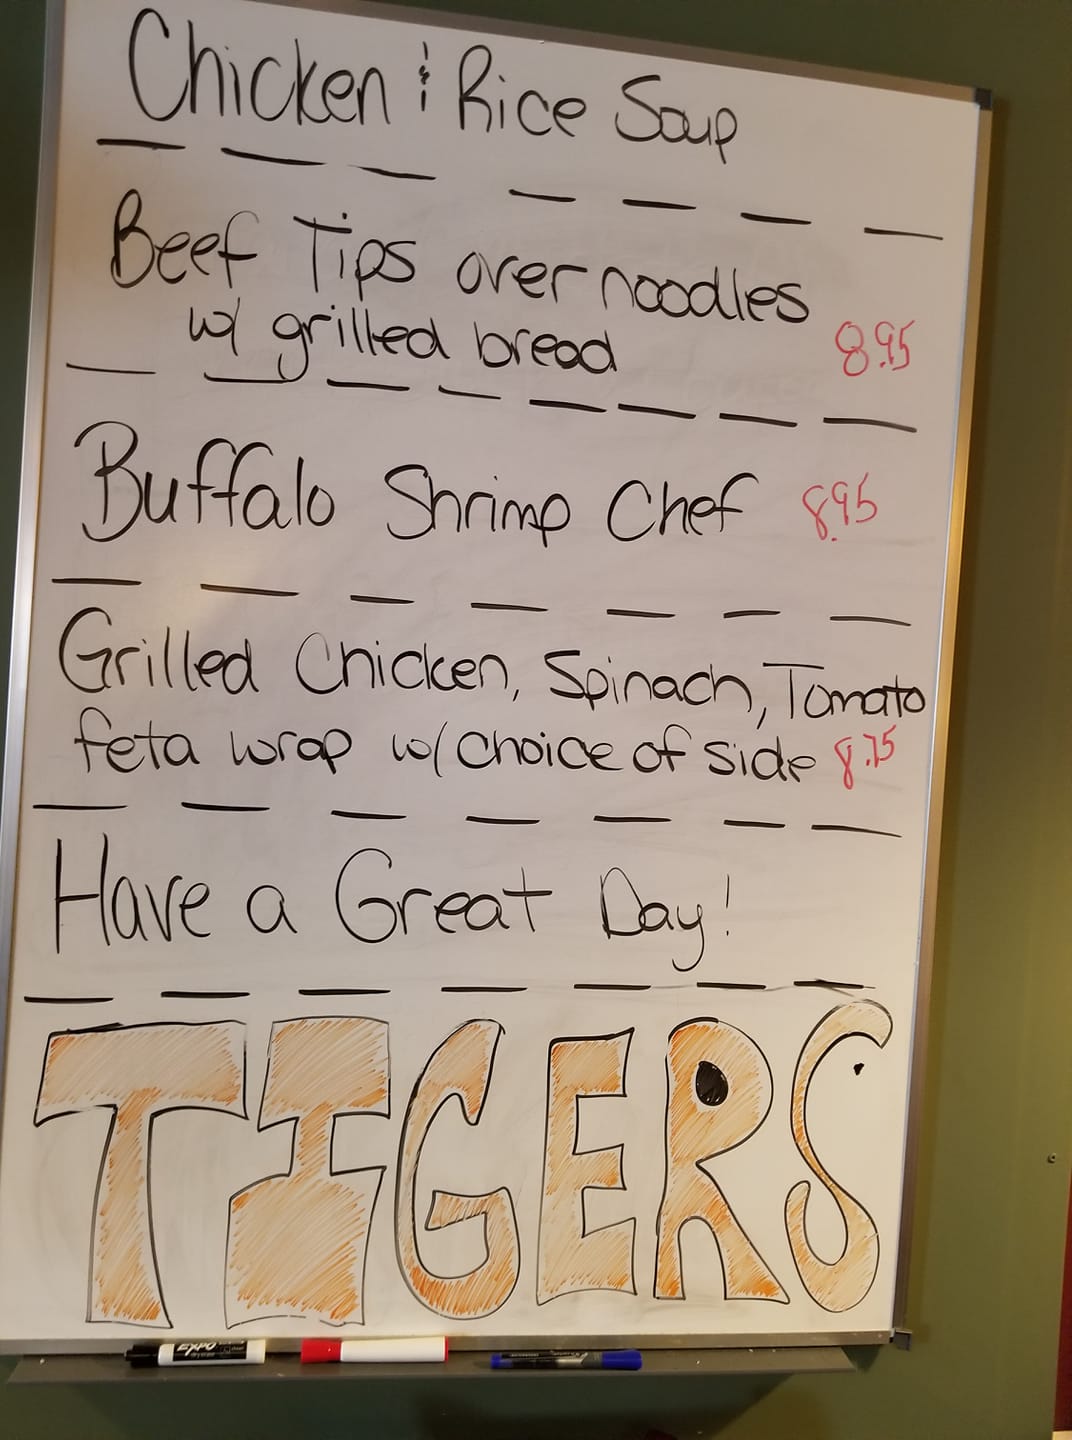 Chicken & Rice Soup
Beef Tips over noodles
w/ grilled bread 8.95
Buffalo Shrimp Chef 8.95
Grilled Chicken, Spinach, Tomato
feta wrap w/ choice of side 8.75
Have a Great Day!
TIGERS
EXPO